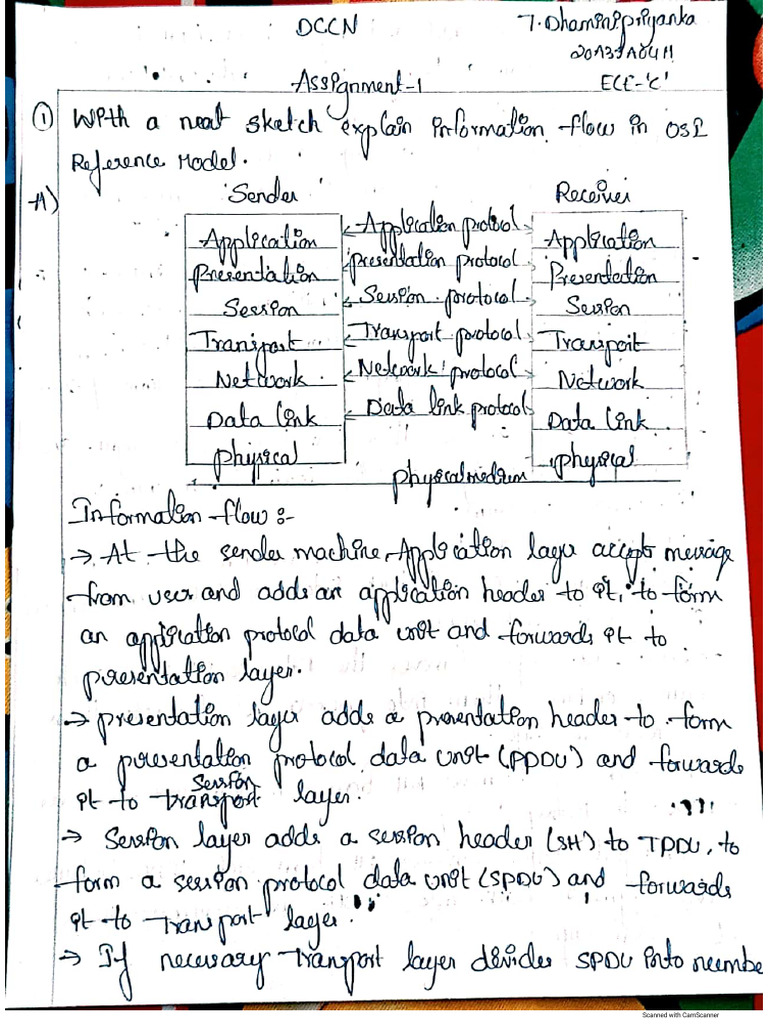 DCCN
T. Dhamini priyanka
20A31A0411
Assignment-1
ECE-'C'
① With a neat sketch explain information flow in OSI
Reference Model.
A)
Sender
Receiver
Application
Application protocol
Application
Presentation
presentation protocol
Presentation
Session
Session protocol
Session
Transport
Transport protocol
Transport
Network
Network protocol
Network
Data link
Data link protocol
Data link
physical
physical
physical medium
Information flow :-
→ At the sender machine, Application layer accept message
from user and adds an application header to it, to form
an application protocol data unit and forwards it to
presentation layer.
→ presentation layer adds a presentation header to form
a presentation protocol data unit (PPDU) and forwards
session
it to transport layer.
→ Session layer adds a session header (SH) to TPDU, to
form a session protocol data unit (SPDU) and forwards
it to transport layer.
→ If necessary transport layer divides SPDU into numbe
Scanned with CamScanner